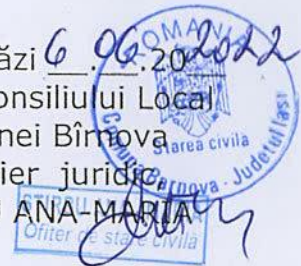 ăzi 6.06.2022
onsiliului Local
nei Bîrnova
ier juridic,
ANA-MARIA
ROMANIA
Starea civilă
Comuna Barnova - Judetul Iasi
Ofiter de stare civilă